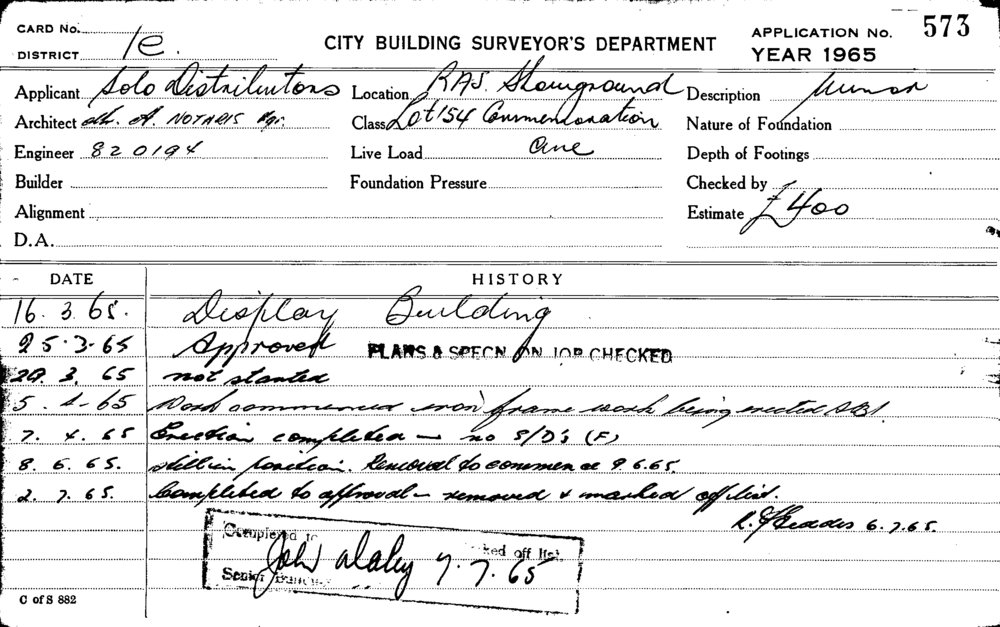 CARD No.
DISTRICT 1e.
CITY BUILDING SURVEYOR'S DEPARTMENT
APPLICATION No. 573
YEAR 1965
Applicant Solo Distributors Location RAS. Showground Description Minor
Architect A. NOTARIS Class Lot 154 Commemoration Nature of Foundation
Engineer 820194 Live Load Ave Depth of Footings
Builder Foundation Pressure Checked by
Alignment Estimate £400
D.A.
DATE HISTORY
16. 3. 65. Display Building
25.3.65 Approved PLANS & SPECN ON JOB CHECKED
29. 3. 65 not started
5. 4. 65 Work commenced iron frame work being erected
7. 4. 65 Erection completed — no S/D's (F)
8. 6. 65. still in position. Removal to commence 9.6.65.
2. 7. 65. Completed to approval — removed & marked off list.
R. Geddes 6.7.65.
Completed to ked off list
John Daley 7.7.65
Senior
C of S 882